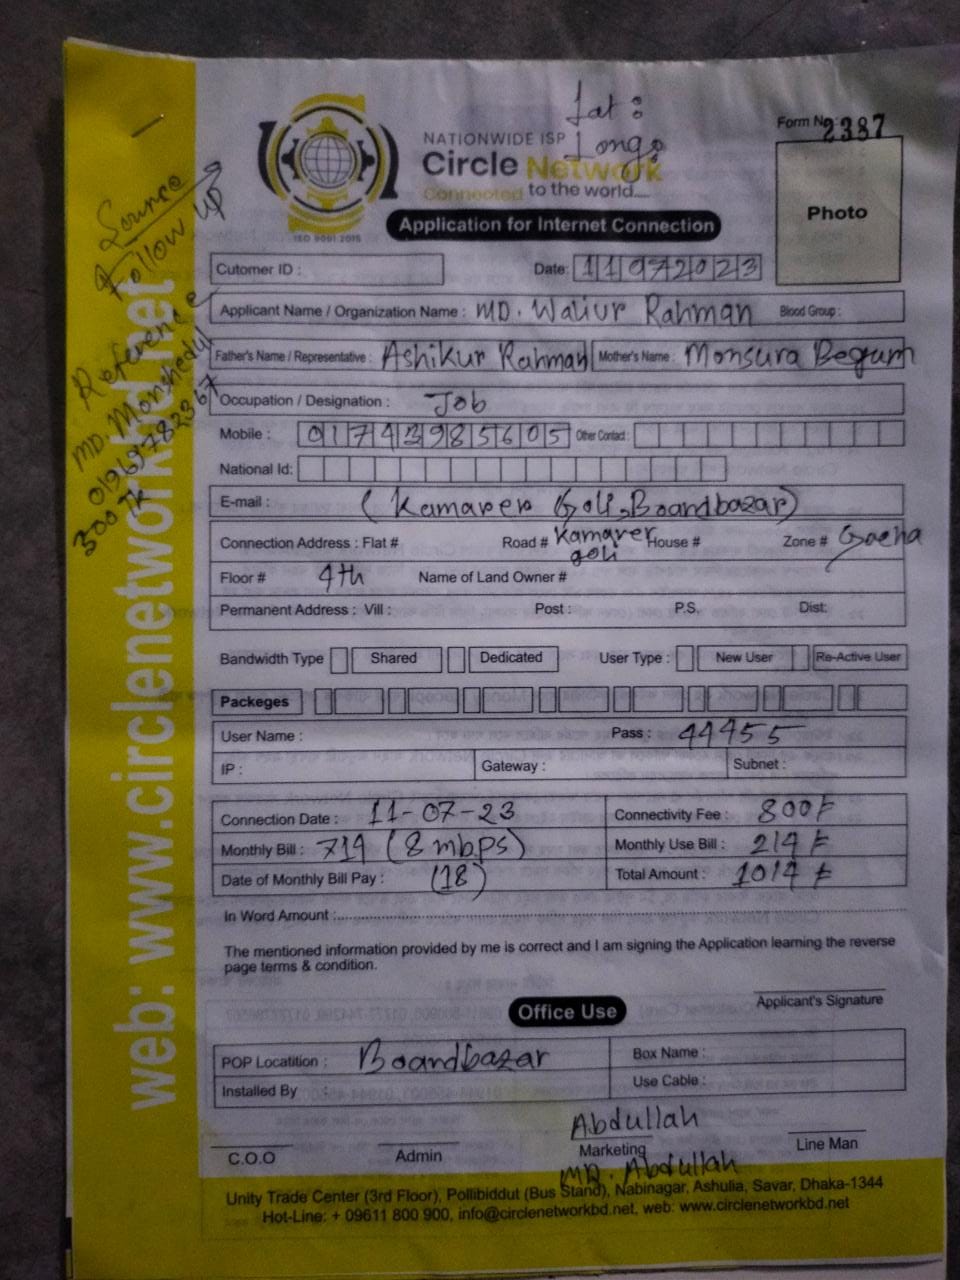 Lat :
Long :
NATIONWIDE ISP
Circle Network
Connected to the world....
ISO 9001:2015
Form No. 2387
Photo
Application for Internet Connection
Source
Follow up
Reference
MD. Morshedul
300 TK
web: www.circlenetworkbd.net
Cutomer ID :
Date: 11072023
Applicant Name / Organization Name : MD. Waliur Rahman Blood Group :
Father's Name / Representative : Ashikur Rahman Mother's Name : Monsura Begum
Occupation / Designation : Job
Mobile : Other Contact :
National Id:
E-mail : (Kamarer Goli, Boardbazar)
Connection Address : Flat # Road # Kamarer goli House # Zone # Gacha
Floor # 4th Name of Land Owner #
Permanent Address : Vill : Post : P.S. Dist:
Bandwidth Type Shared Dedicated User Type : New User Re-Active User
Packeges
User Name : Pass : 44455
IP : Gateway : Subnet :
Connection Date : 11-07-23 Connectivity Fee : 800/-
Monthly Bill : 714 (8 mbps) Monthly Use Bill : 214/-
Date of Monthly Bill Pay : (18) Total Amount : 1014/-
In Word Amount :
The mentioned information provided by me is correct and I am signing the Application learning the reverse
page terms & condition.
Applicant's Signature
Office Use
POP Locatition : Boardbazar Box Name :
Installed By : Use Cable :
Abdullah
C.O.O Admin Marketing Line Man
MD. Abdullah
Unity Trade Center (3rd Floor), Pollibiddut (Bus Stand), Nabinagar, Ashulia, Savar, Dhaka-1344
Hot-Line: + 09611 800 900, info@circlenetworkbd.net, web: www.circlenetworkbd.net